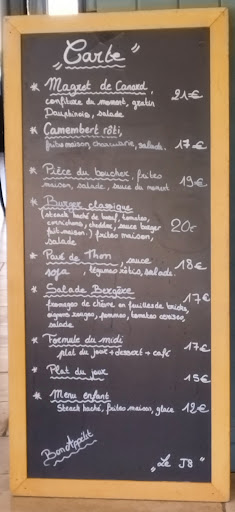 "Carte"
* Magret de Canard,
confiture du moment, gratin
Dauphinois, salade
21€
* Camembert rôti,
frites maison, charcuterie, salade. 17€
* Pièce du boucher, frites
maison, salade, sauce du moment
19€
* Burger classique
(steack haché de bœuf, tomates,
cornichons, cheddar, sauce burger
fait maison) frites maison,
salade
20€
* Pavé de Thon, sauce
soja, légumes rôtis, salade.
18€
* Salade Bergère
fromages de chèvre en feuilles de bricks,
oignons rouges, pommes, tomates cerises,
salade
17€
* Formule du midi
plat du jour + dessert + café
17€
* Plat du jour 15€
* Menu enfant
Steack haché, frites maison, glace 12€
Bon Appétit
"Le J8"